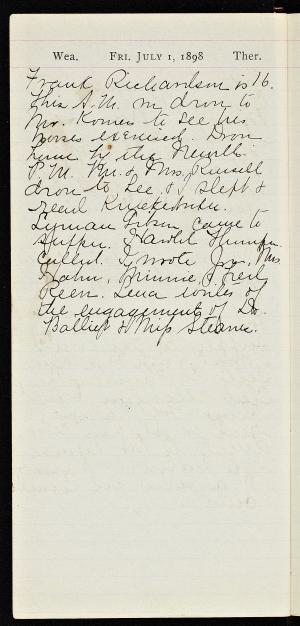 Wea. FRI. JULY 1, 1898 Ther.
Frank Richardson is 16.
This A.M. m drove to
Mr. to see his
horses exercised. Drove
home by the Newell.
P.M. Mr. & Mrs. Russell
drove to see I slept &
read Knickerbocker.
Lyman came to
supper. Harold
called. I wrote Jos, Mrs
Hahn, Minnie, Fred
Keen. Lena writes of
the engagement of Dr.
& Miss Stearns.